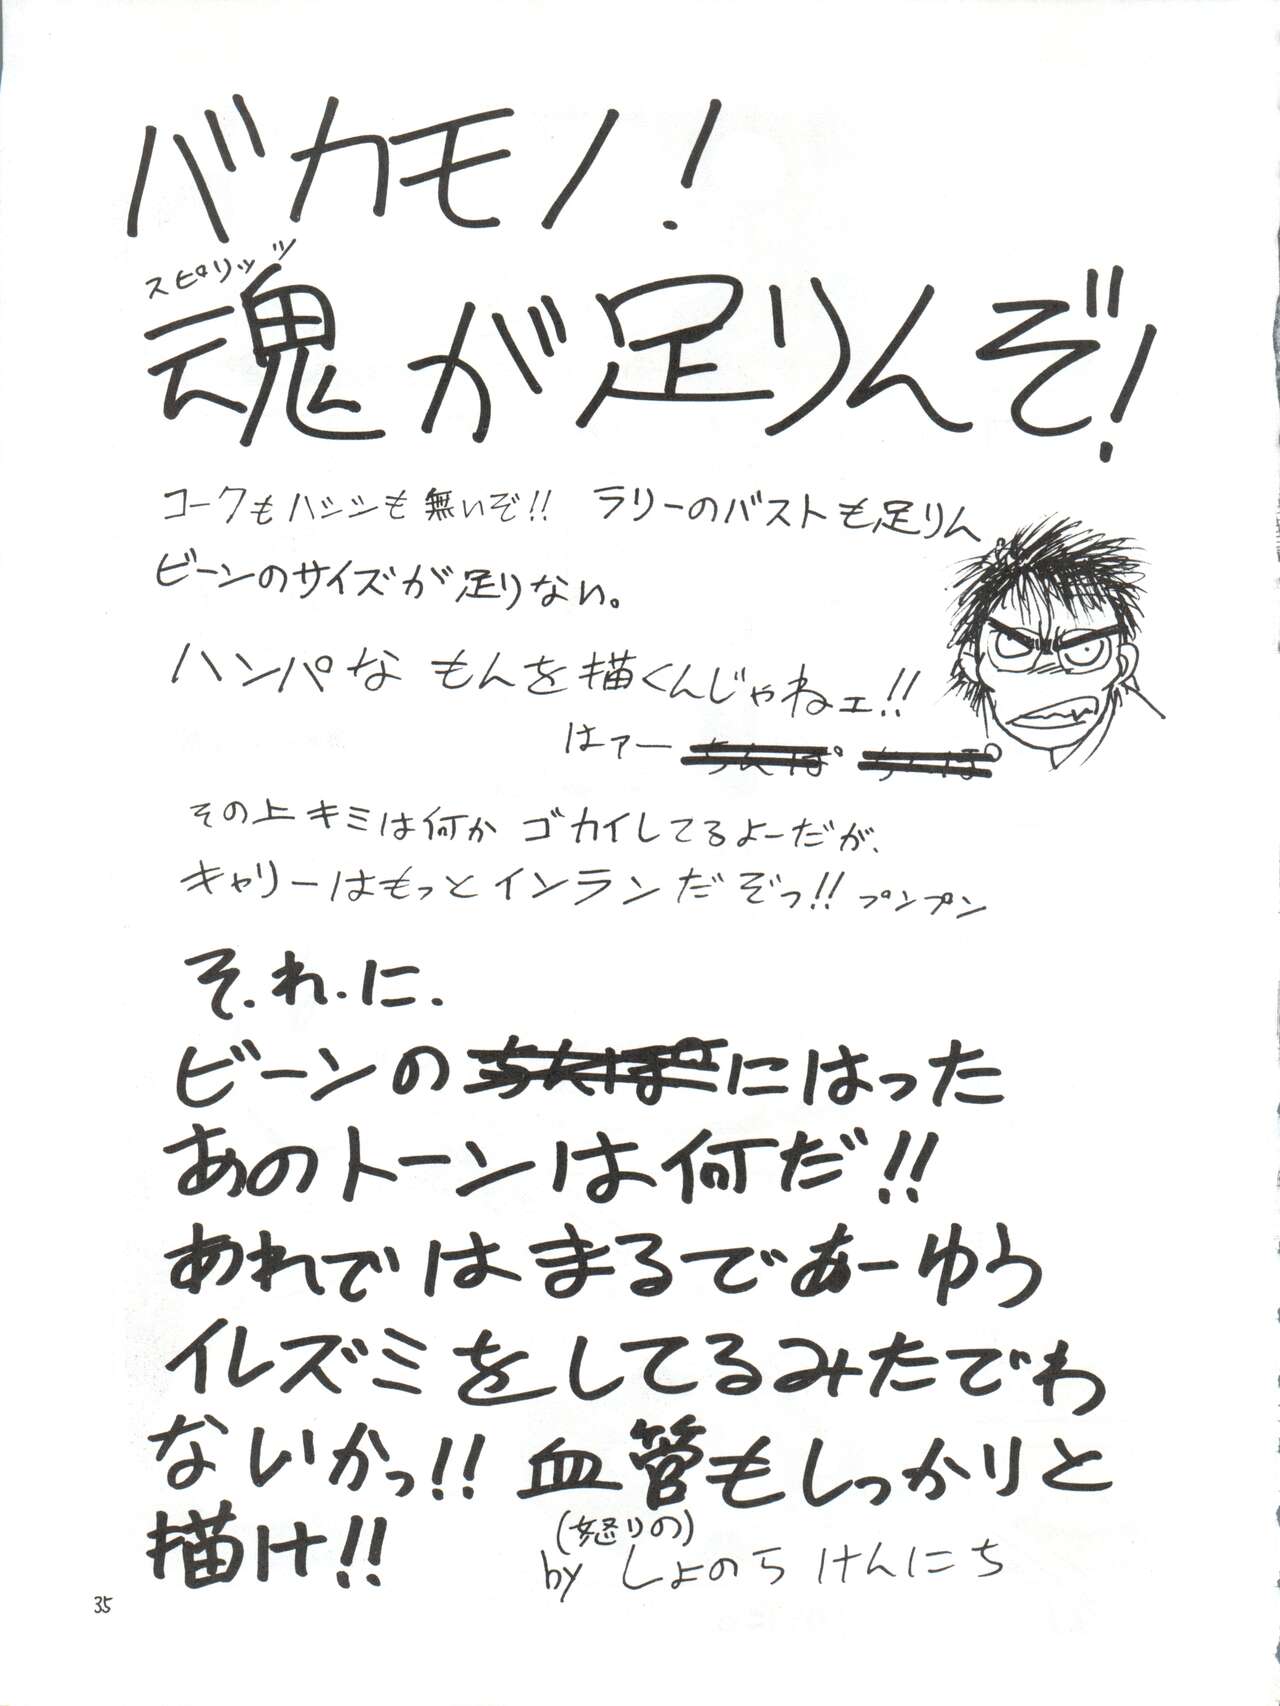 バカモノ!
スピリッツ
魂が足りんぞ!
コークもハシシも無いぞ!! ラリーのバストも足りん
ビーンのサイズが足りない。
ハンパなもんを描くんじゃねェ!!
はァー ちんぽ ちんぽ
その上キミは何かゴカイしてるよーだが、
キャリーはもっとインランだぞっ!! プンプン
そ.れ.に.
ビーンのちんぽにはった
あのトーンは何だ!!
あれではまるであーゆう
イレズミをしてるみたでわ
ないかっ!! 血管もしっかりと
描け!!
(怒りの)
by しよのら けんにち
35